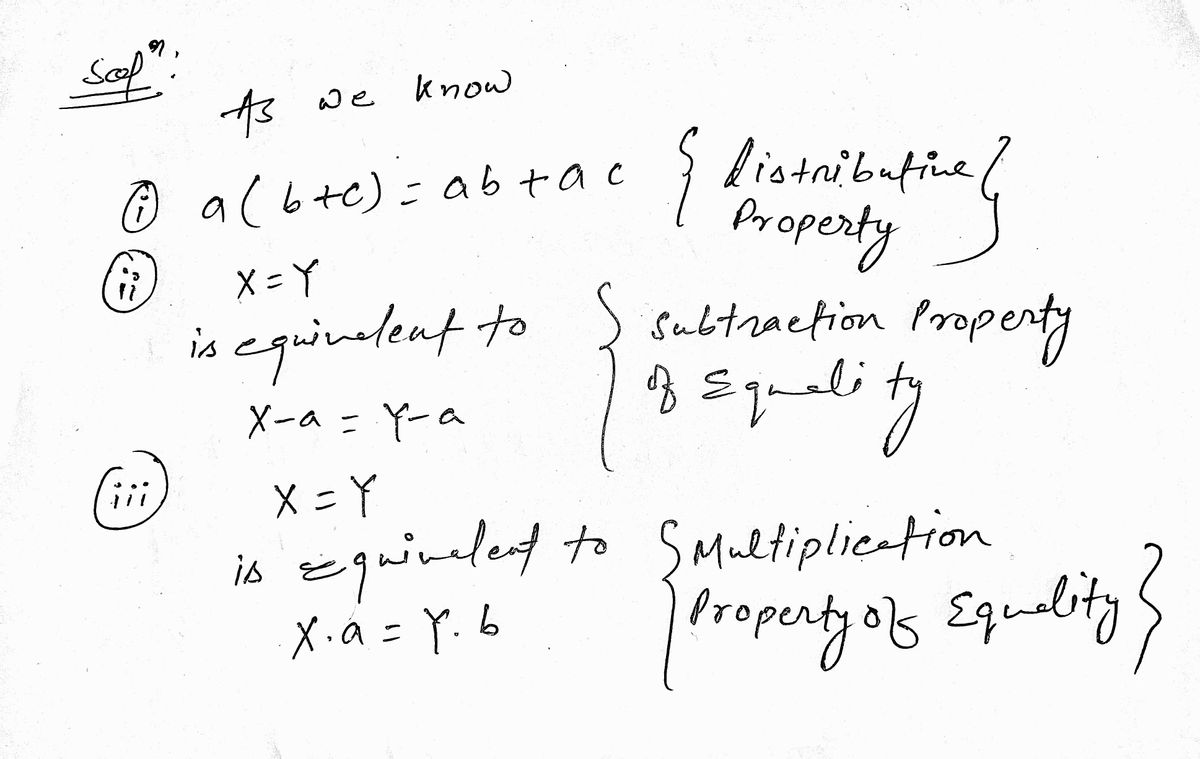 Solⁿ:
As we know
(i) a(b+c) = ab + ac { distributive Property }
(ii) X = Y
is equivalent to { subtraction Property of Equality
X-a = Y-a
(iii) X = Y
is equivalent to { Multiplication Property of Equality }
X.a = Y.b